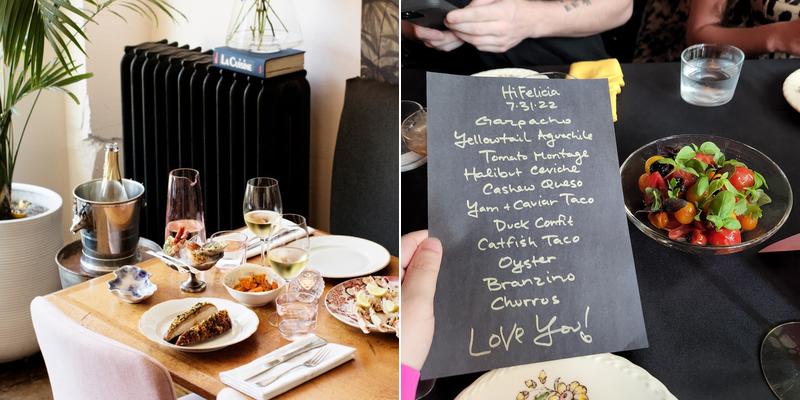 La Cuisine
HiFelicia
7.31.22
Gazpacho
Yellowtail Aguachile
Tomato Montage
Halibut Ceviche
Cashew Queso
Yam + Caviar Taco
Duck Confit
Catfish Taco
Oyster
Branzino
Churros
Love You!